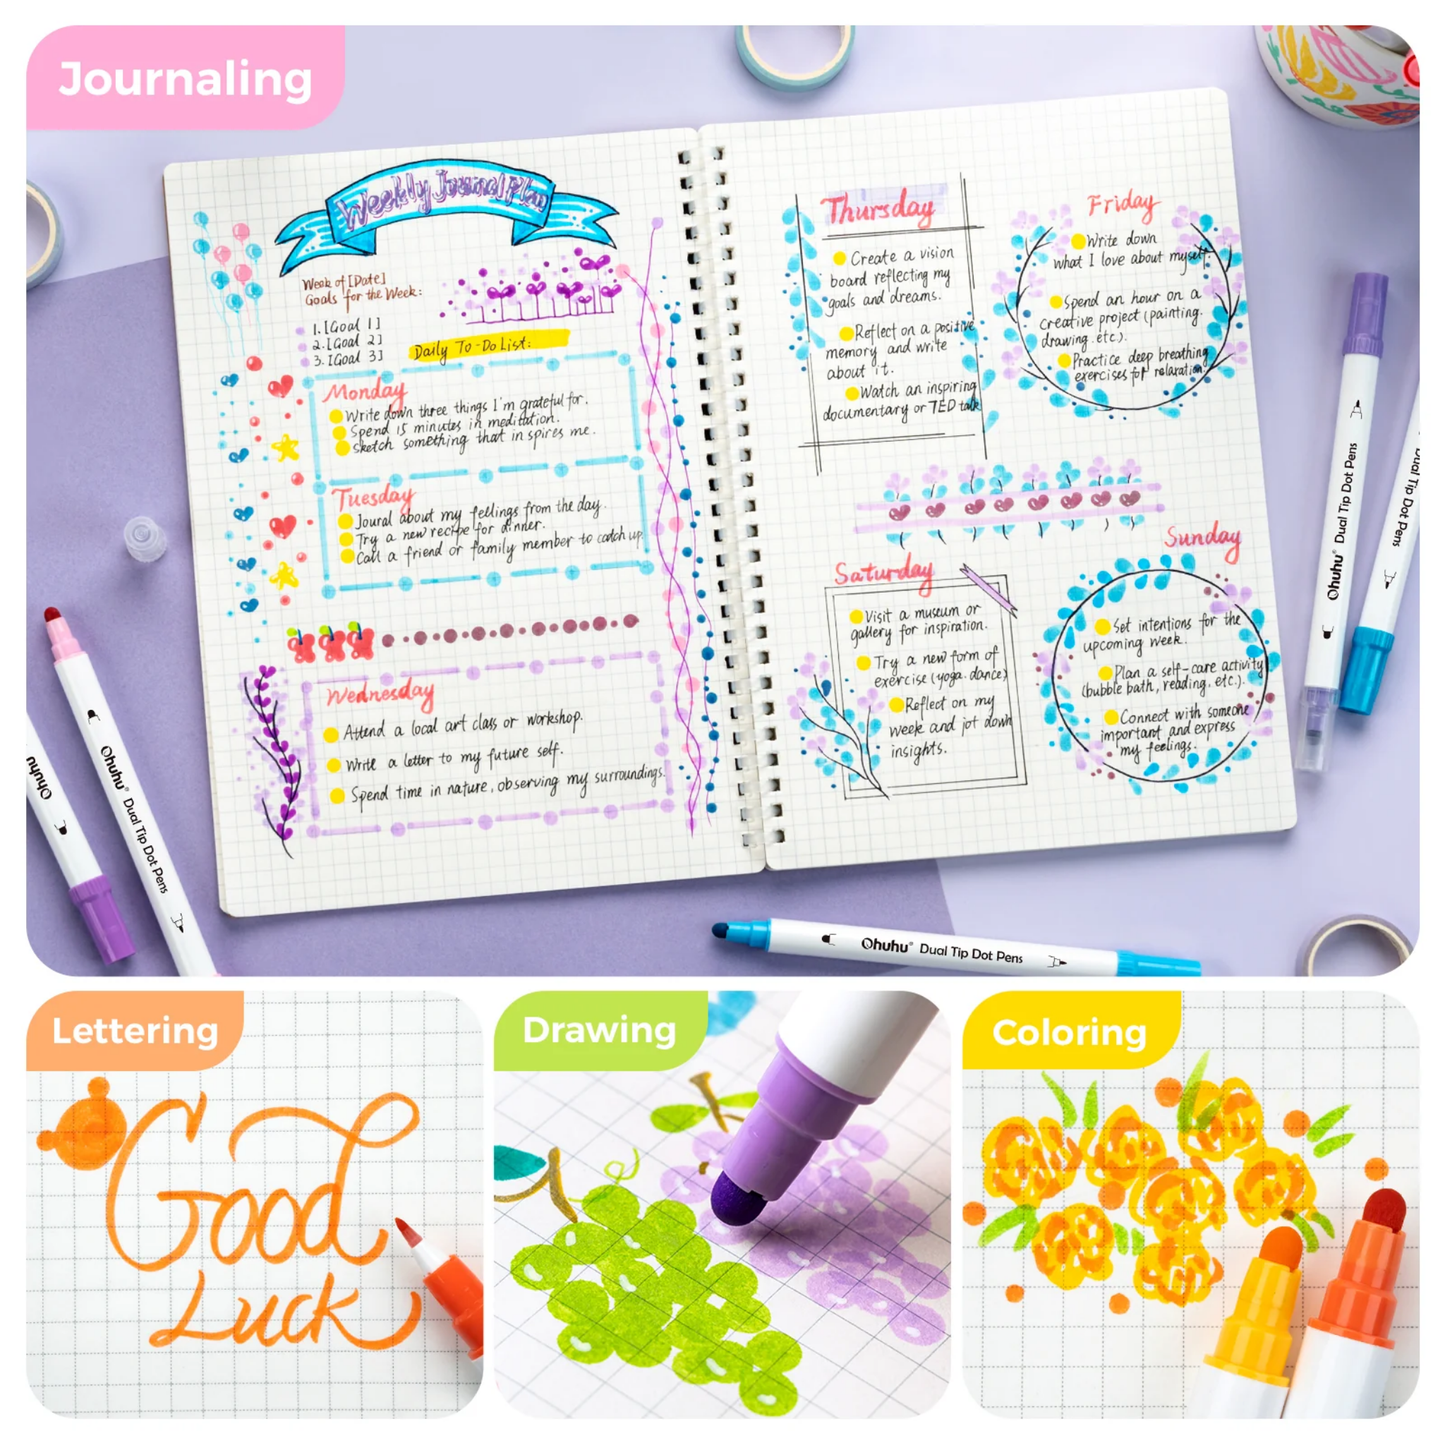 Journaling
Weekly Journal Plan
Week of [Date]
Goals for the Week:
1. [Goal 1]
2. [Goal 2]
3. [Goal 3]
Daily To-Do List:
Monday
Write down three things I'm grateful for.
Spend 15 minutes in meditation.
Sketch something that inspires me.
Tuesday
Joural about my feelings from the day.
Try a new recipe for dinner.
Call a friend or family member to catch up.
Wednesday
Attend a local art class or workshop.
Write a letter to my future self.
Spend time in nature, observing my surroundings.
Thursday
Create a vision
board reflecting my
goals and dreams.
Reflect on a positive
memory and write
about it.
Watch an inspiring
documentary or TED talk
Friday
Write down
what I love about myself.
Spend an hour on a
creative project (painting.
drawing. etc.).
Practice deep breathing
exercises for relaxation
Saturday
Visit a museum or
gallery for inspiration.
Try a new form of
exercise (yoga. dance)
Reflect on my
week and jot down
insights.
Sunday
Set intentions for the
upcoming week.
Plan a self-care activity
(bubble bath, reading. etc.).
Connect with someone
important and express
my feelings.
Ohuhu
Ohuhu® Dual Tip Dot Pens
Ohuhu® Dual Tip Dot Pens
Ohuhu® Dual Tip Dot Pens
Dual Tip Dot Pens
Lettering
Good
Luck
Drawing
Coloring